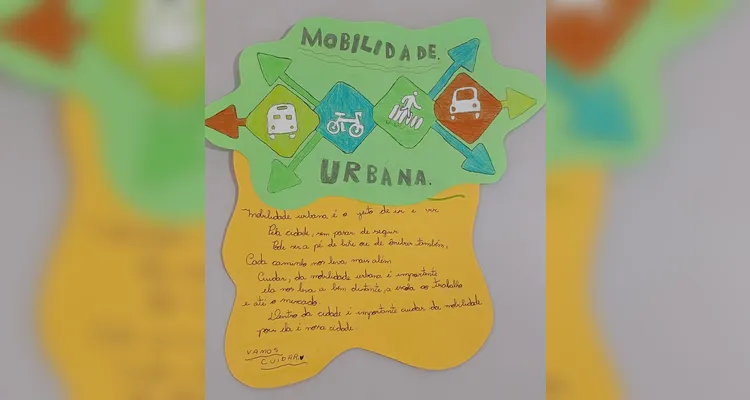 MOBILIDADE.
URBANA.
Mobilidade urbana é o jeito de ir e vir
Pela cidade, sem parar de seguir
Pode ser a pé de bike ou de ônibus também,
Cada caminho nos leva mais além
Cuidar, da mobilidade urbana é importante
ela nos leva a bem distante, a escola ao trabalho
e até o mercado
Dentro da cidade é importante cuidar da mobilidade
pois ela é nossa cidade.
VAMOS
CUIDAR